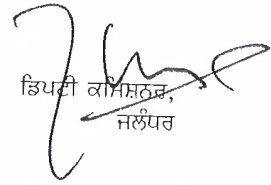 ਡਿਪਟੀ ਕਮਿਸ਼ਨਰ,
ਜਲੰਧਰ